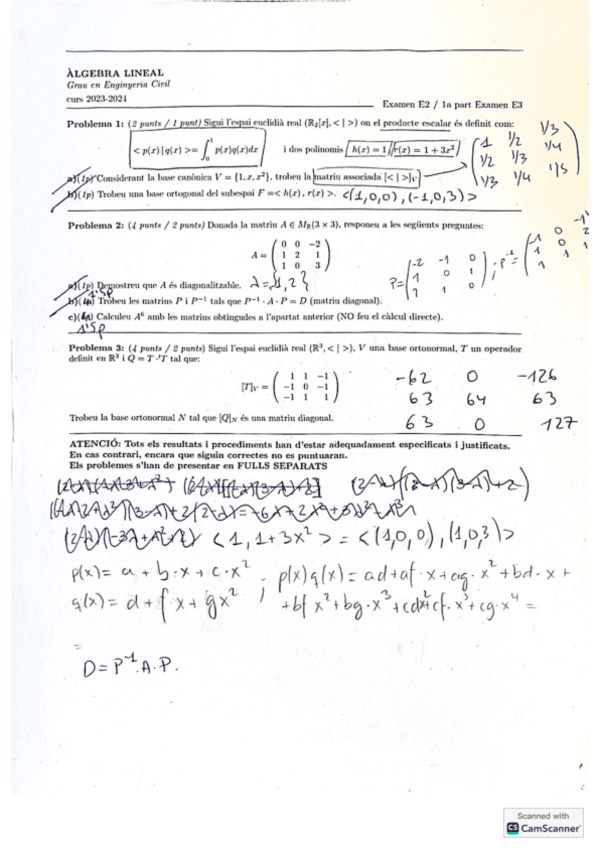 ÀLGEBRA LINEAL
Grau en Enginyeria Civil
curs 2023-2024
Examen E2 / 1a part Examen E3
Problema 1: (2 punts / 1 punt) Sigui l'espai euclidià real (ℝ₂[x], < | >) on el producte escalar és definit com:
< p(x) | q(x) >= ∫₀¹ p(x)q(x)dx i dos polinomis h(x) = 1 / r(x) = 1 + 3x²
1 1/2 1/3
1/2 1/3 1/4
1/3 1/4 1/5
a)(1p) Considerant la base canònica V = {1, x, x²}, trobeu la matriu associada [< | >]V
b)(1p) Trobeu una base ortogonal del subespai F =< h(x), r(x) >. <(1,0,0), (-1,0,3)>
Problema 2: (4 punts / 2 punts) Donada la matriu A ∈ Mℝ(3 × 3), responeu a les següents preguntes:
A =
0 0 −2
1 2 1
1 0 3
P=
-2 -1 0
1 0 1
1 1 0
; P⁻¹=
a)(1p) Demostreu que A és diagonalitzable. λ={1,2}
b) 1'5p Trobeu les matrius P i P⁻¹ tals que P⁻¹ · A · P = D (matriu diagonal).
c) Calculeu A⁶ amb les matrius obtingudes a l'apartat anterior (NO feu el càlcul directe).
1'5p
Problema 3: (4 punts / 2 punts) Sigui l'espai euclidià real (ℝ³, < | >), V una base ortonormal, T un operador
definit en ℝ³ i Q = T · ᵗT tal que:
[T]V =
1 1 −1
−1 0 −1
−1 1 1
-62 0 -126
63 64 63
63 0 127
Trobeu la base ortonormal N tal que [Q]N és una matriu diagonal.
ATENCIÓ: Tots els resultats i procediments han d'estar adequadament especificats i justificats.
En cas contrari, encara que siguin correctes no es puntuaran.
Els problemes s'han de presentar en FULLS SEPARATS
<1, 1+3x²> = <(1,0,0), (1,0,3)>
p(x)= a + b·x + c·x² ; p(x)q(x) = ad+af·x+ag·x²+bd·x+
q(x)= d+fx+gx² +bfx²+bg·x³+cdx²+cf·x³+cg·x⁴ =
=
D=P⁻¹.A.P.
Scanned with
CS CamScanner